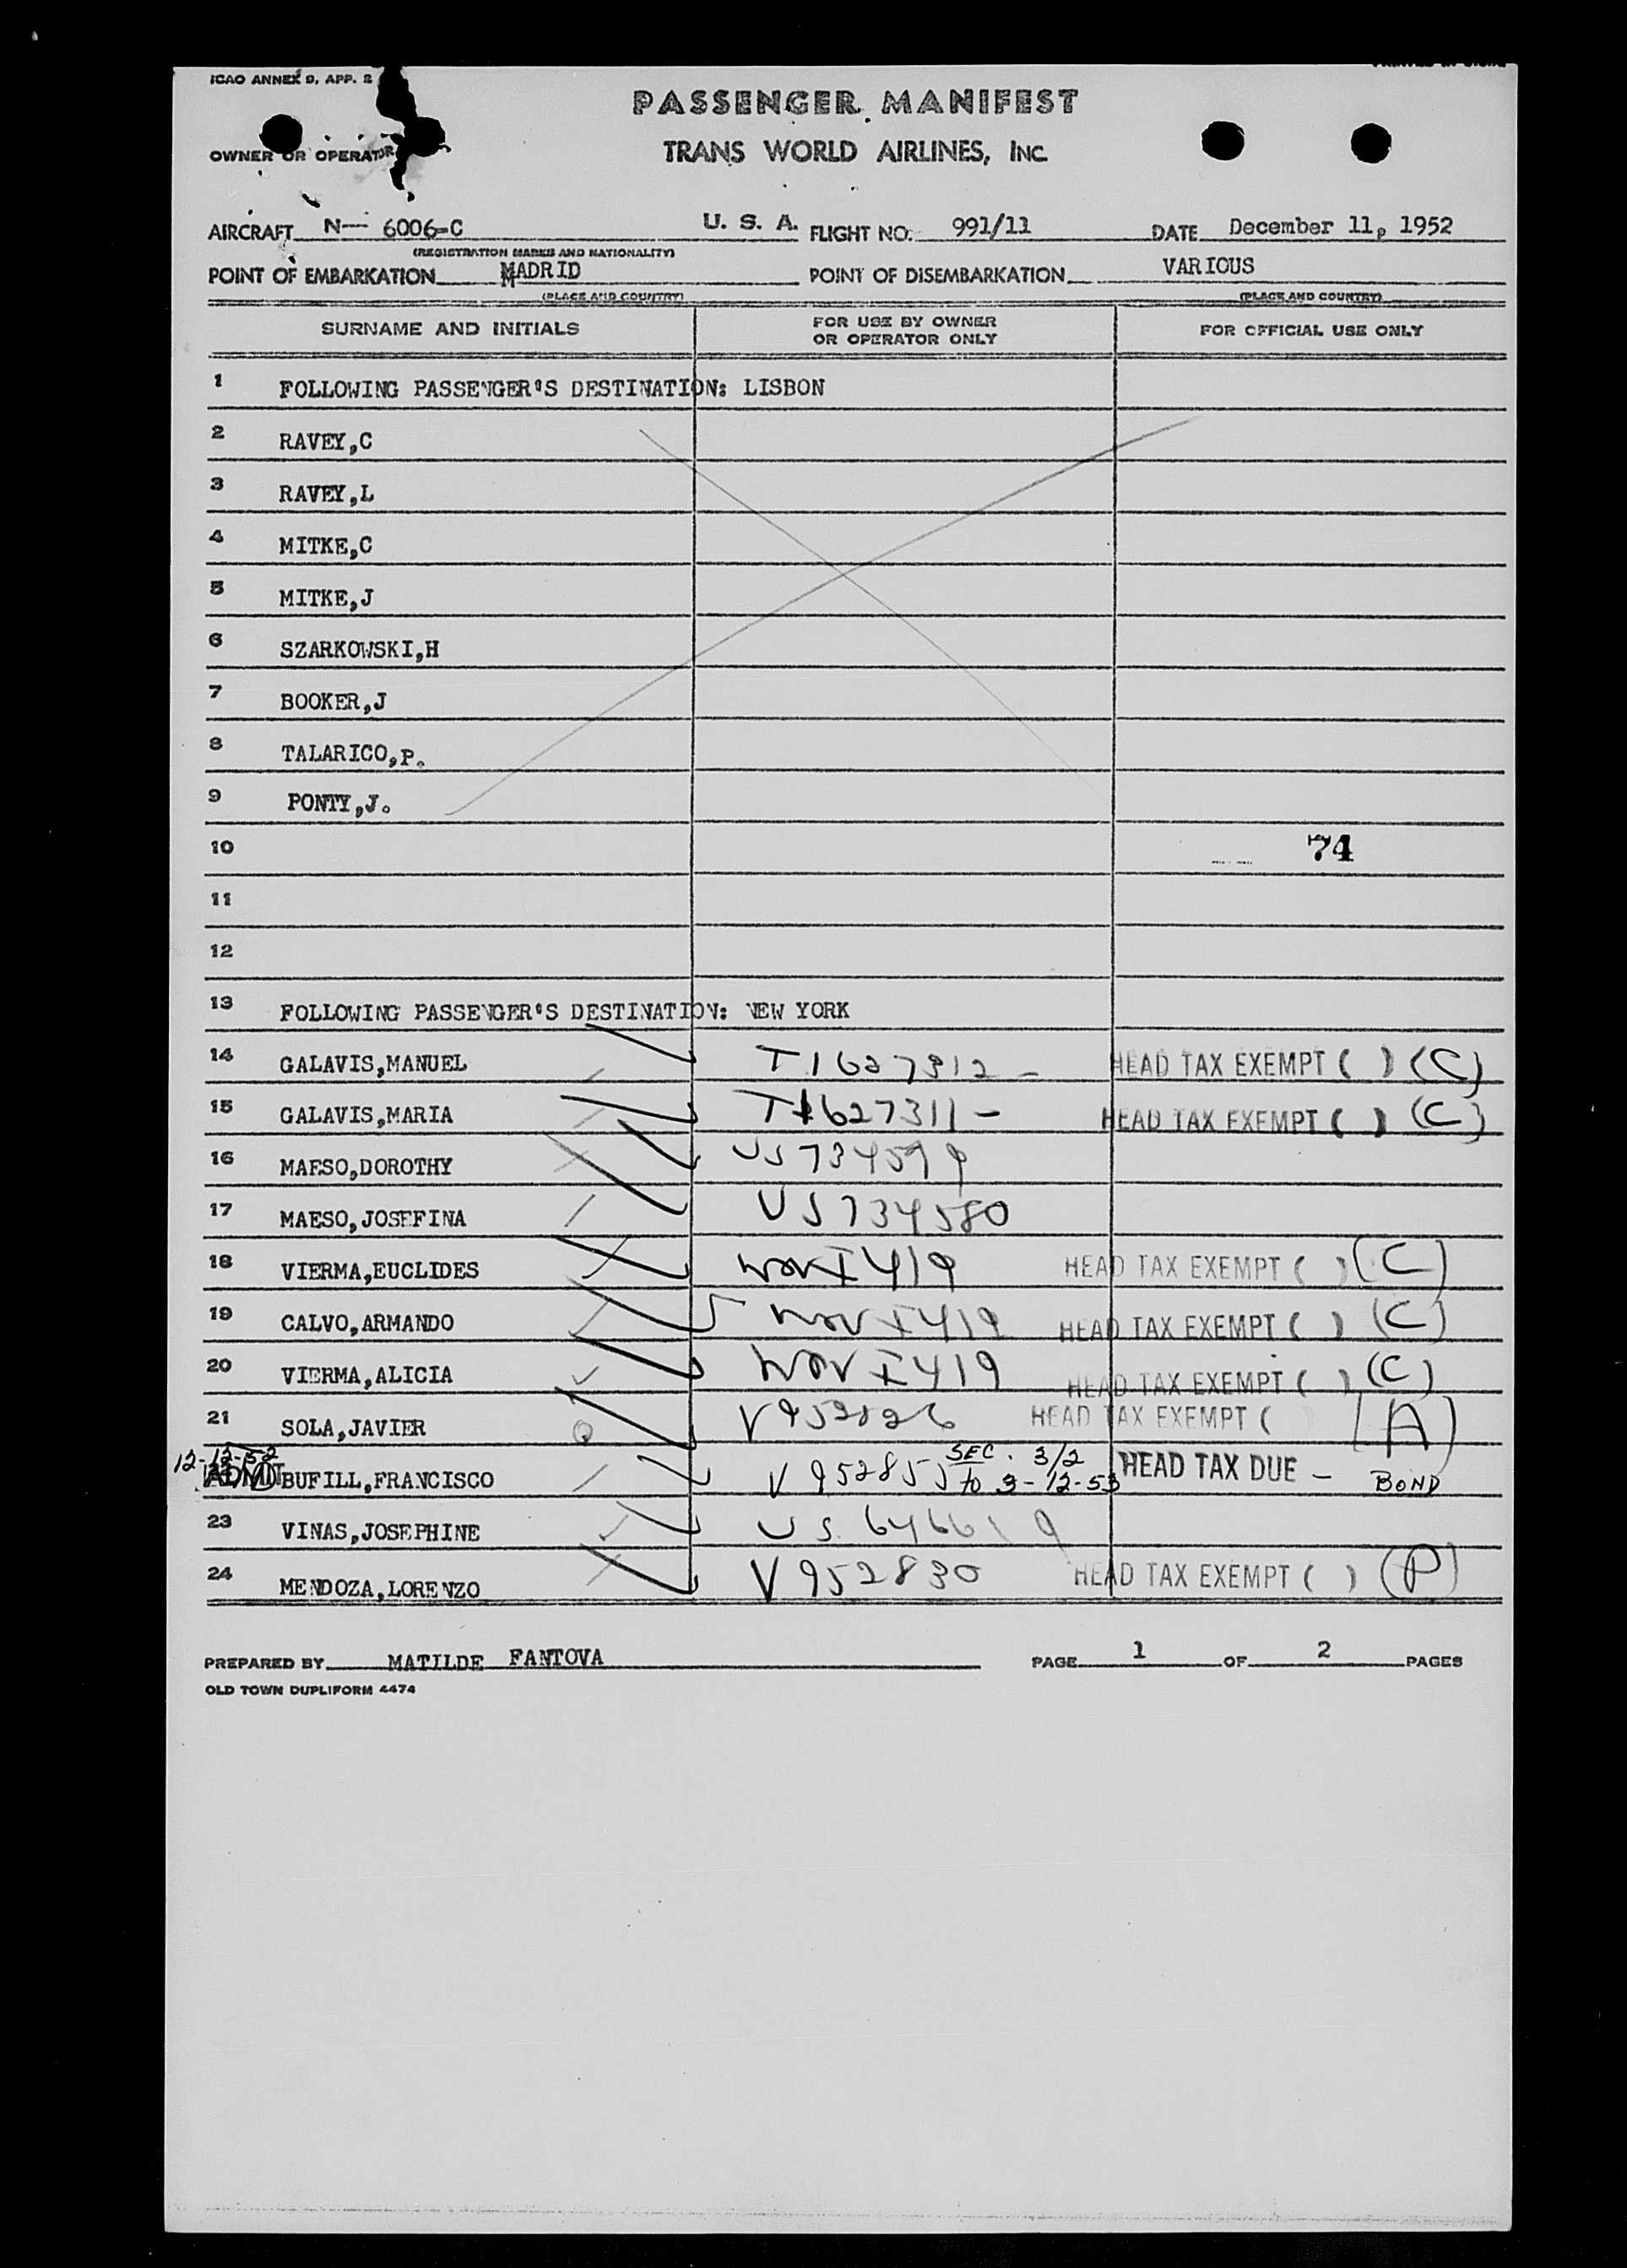 ICAO ANNEX 9, APP. 2
PASSENGER MANIFEST
OWNER OR OPERATOR
TRANS WORLD AIRLINES, INC.
AIRCRAFT N— 6006-C U. S. A. FLIGHT NO. 991/11 DATE December 11, 1952
(REGISTRATION MARKS AND NATIONALITY)
POINT OF EMBARKATION MADRID POINT OF DISEMBARKATION VARIOUS
(PLACE AND COUNTRY) (PLACE AND COUNTRY)
SURNAME AND INITIALS FOR USE BY OWNER OR OPERATOR ONLY FOR OFFICIAL USE ONLY
1 FOLLOWING PASSENGER'S DESTINATION: LISBON
2 RAVEY,C
3 RAVEY,L
4 MITKE,C
5 MITKE,J
6 SZARKOWSKI,H
7 BOOKER,J
8 TALARICO,P.
9 PONTY,J.
10 74
11
12
13 FOLLOWING PASSENGER'S DESTINATION: NEW YORK
14 GALAVIS,MANUEL T1627312 - HEAD TAX EXEMPT ( ) (C)
15 GALAVIS,MARIA T1627311 - HEAD TAX EXEMPT ( ) (C)
16 MAESO,DOROTHY US734579
17 MAESO,JOSEFINA US734580
18 VIERMA,EUCLIDES I419 HEAD TAX EXEMPT ( ) (C)
19 CALVO,ARMANDO I419 HEAD TAX EXEMPT ( ) (C)
20 VIERMA,ALICIA I419 HEAD TAX EXEMPT ( ) (C)
21 SOLA,JAVIER V952826 HEAD TAX EXEMPT ( (A)
12-12-52
ADMD BUFILL,FRANCISCO V952855 SEC. 3/2 to 3-12-53 HEAD TAX DUE - BOND
23 VINAS,JOSEPHINE US 646619
24 MENDOZA,LORENZO V952830 HEAD TAX EXEMPT ( ) (P)
PREPARED BY MATILDE FANTOVA PAGE 1 OF 2 PAGES
OLD TOWN DUPLIFORM 4474